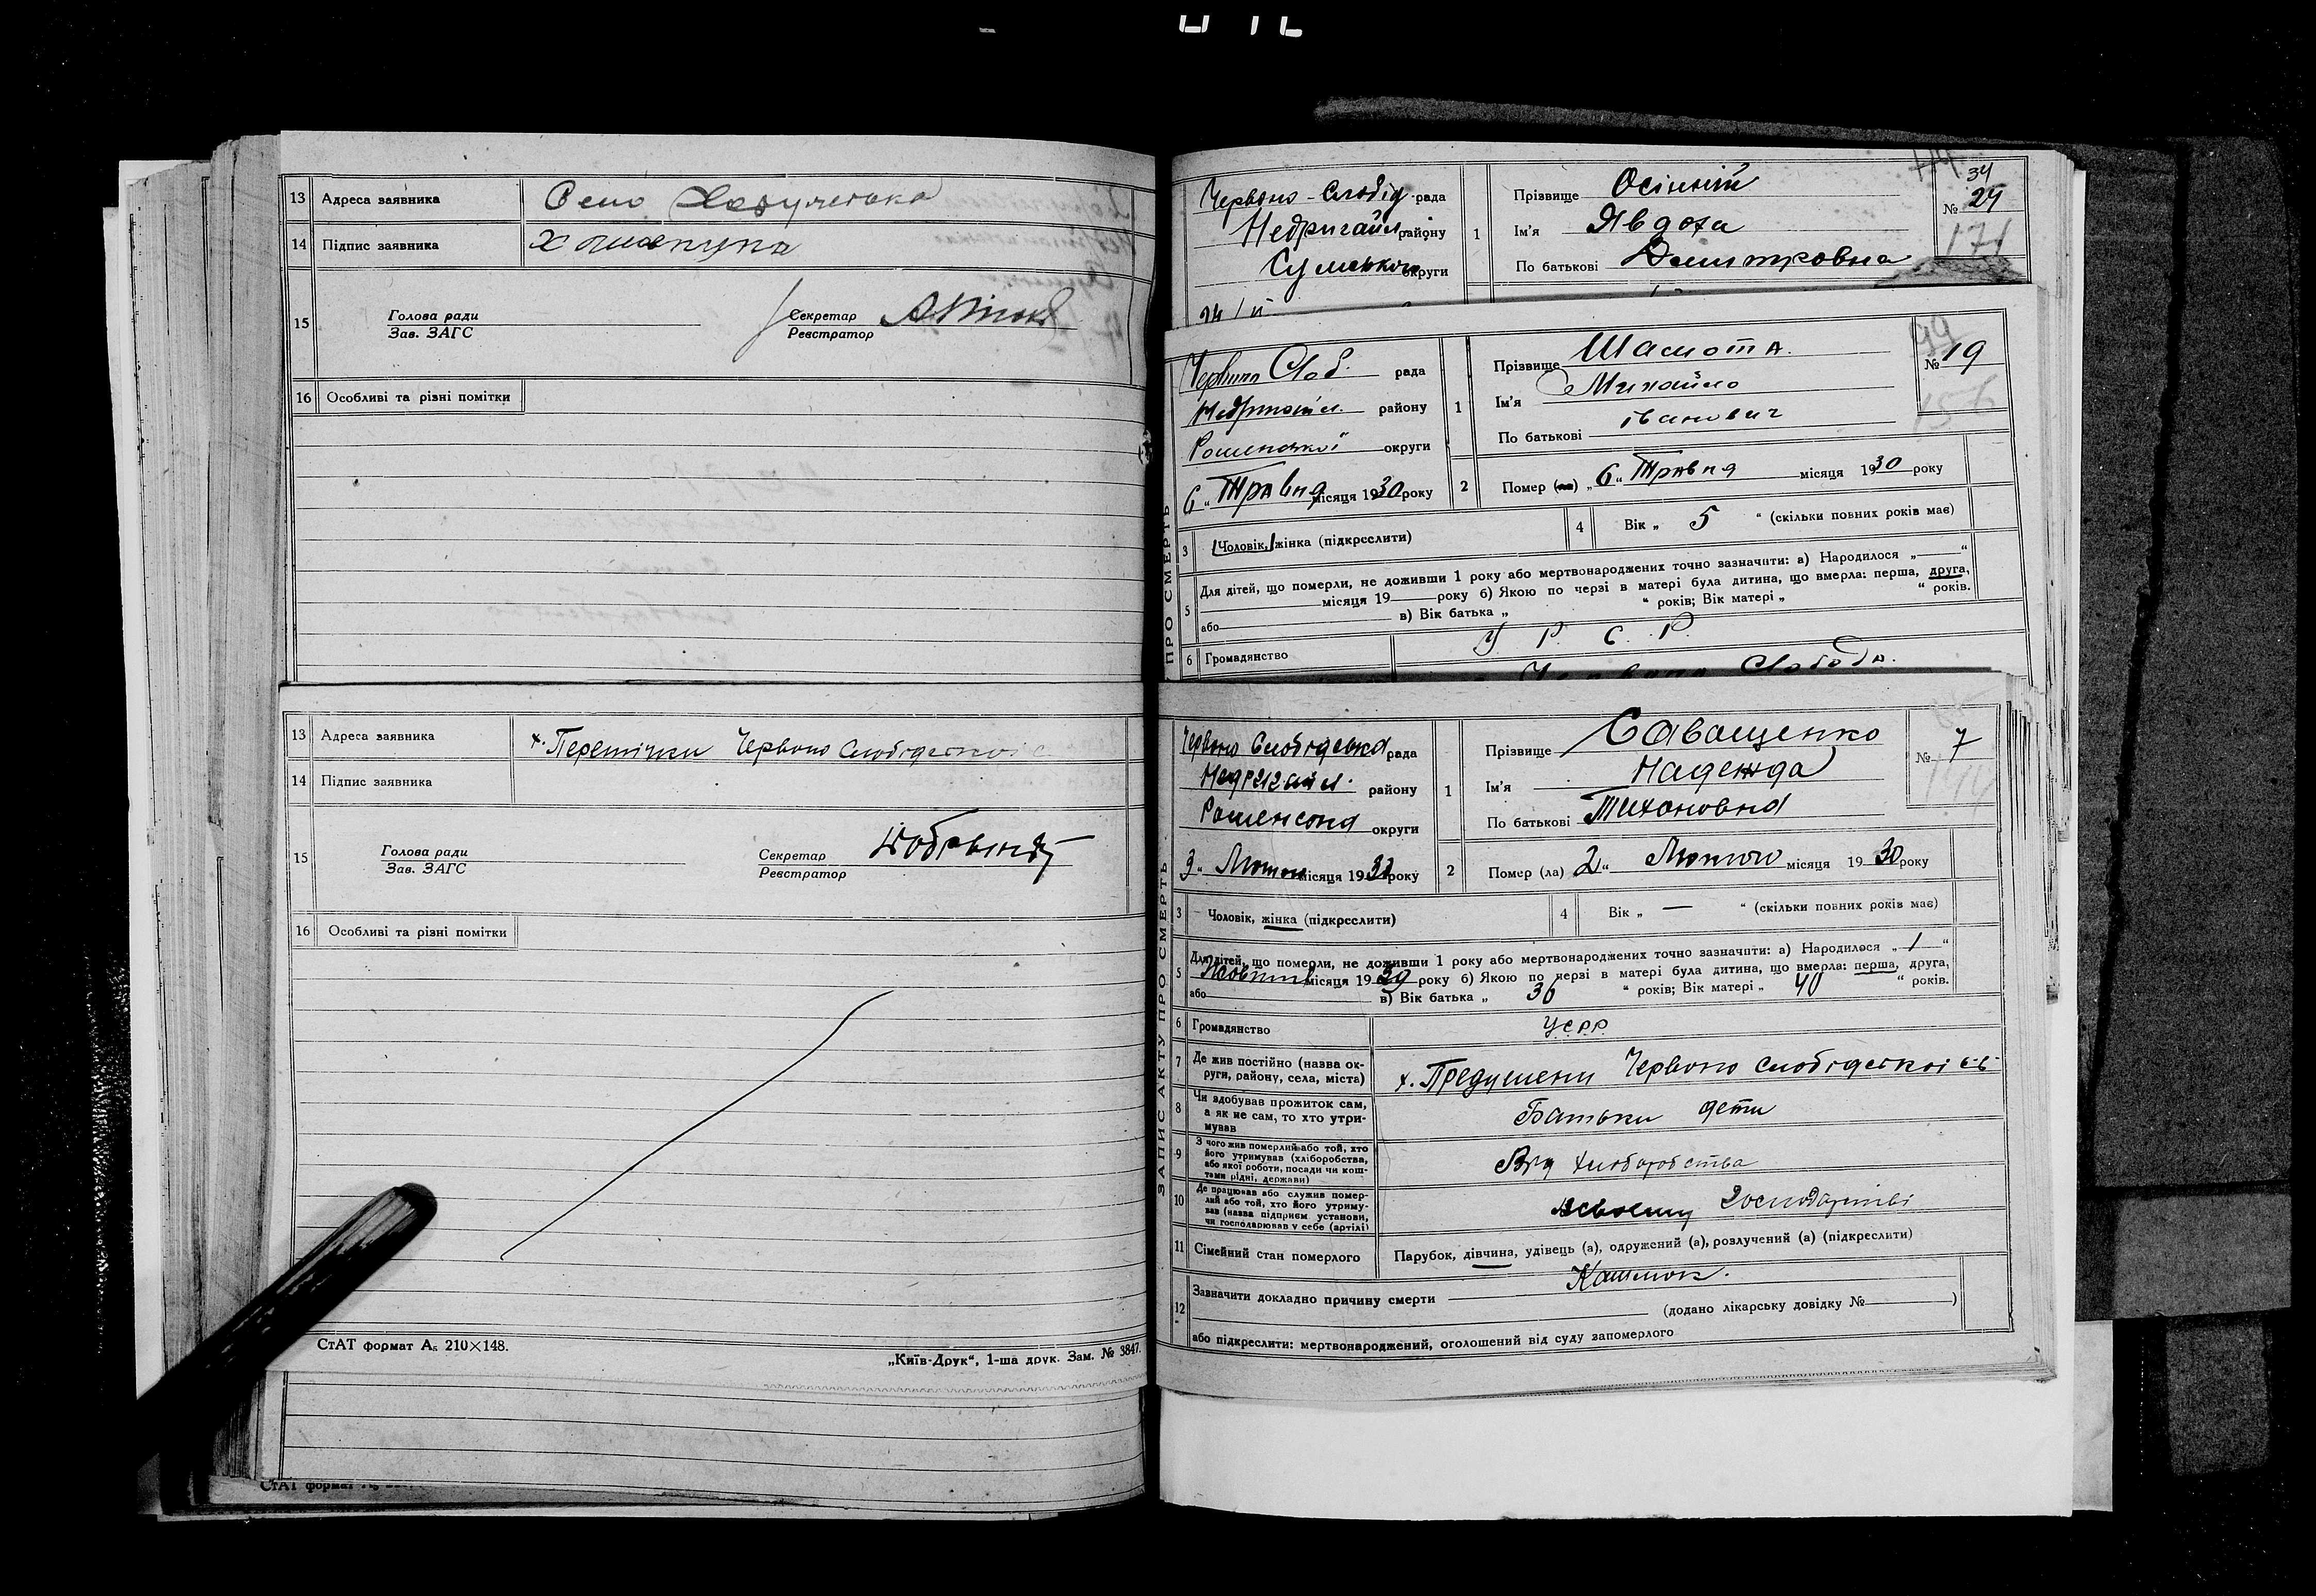 13 Адреса заявника Село
14 Підпис заявника
15 Голова ради
Зав. ЗАГС
Секретар
Реєстратор
16 Особливі та різні помітки
13 Адреса заявника х. Перетічки Червоно Слобідської с
14 Підпис заявника
15 Голова ради
Зав. ЗАГС
Секретар
Реєстратор
16 Особливі та різні помітки
СтАТ формат А₅ 210×148.
„Київ-Друк“, 1-ша друк. Зам. № 3847.
СтАТ формат
Червоно-Слобід. рада
Недригайл. району
Сумськой округи
24/ІІ
1 Прізвище Осінній
Ім'я Явдоха
По батькові Дмитровна
34
№ 24
171
Червона Слоб. рада
Недригайл. району
Роменської округи
6 „ Травня місяця 1930 року
1 Прізвище Шамота.
Ім'я Михайло
По батькові Іванович
99
№ 19
156
2 Помер (ла) „6“ Травня місяця 1930 року
3 Чоловік, жінка (підкреслити)
4 Вік „ 5 “ (скільки повних років має)
5 Для дітей, що померли, не доживши 1 року або мертвонароджених точно зазначити: а) Народилося „ “
місяця 19 року б) Якою по черзі в матері була дитина, що вмерла: перша, друга,
або в) Вік батька „ “ років; Вік матері „ “ років.
6 Громадянство У. Р. С. Р.
Червона Слобода.
ПРО СМЕРТЬ
Червоно Слобідська рада
Недригайл. району
Роменська округи
3 „ Лютого місяця 1930 року
1 Прізвище Саващенко
Ім'я Надежда
По батькові Тихоновна
№ 7
144
2 Помер (ла) 2 “ Лютого місяця 1930 року
3 Чоловік, жінка (підкреслити)
4 Вік „ — “ (скільки повних років має)
5 Для дітей, що померли, не доживши 1 року або мертвонароджених точно зазначити: а) Народилося „ 1 “
Жовтня місяця 1929 року б) Якою по черзі в матері була дитина, що вмерла: перша, друга,
або в) Вік батька „ 36 “ років; Вік матері „ 40 “ років.
6 Громадянство УСРР
7 Де жив постійно (назва округи, району, села, міста) х. Червоно Слобідської с-в
8 Чи здобував прожиток сам, а як не сам, то хто утримував Батьки дети
9 З чого жив померлий або той, хто його утримував (хліборобства, або якої роботи, посади чи коштами рідні, держави) Від хліборобства
10 Де працював або служив померлий або той, хто його утримував (назва підприєм. установи, чи господарював у себе (артілі) в своему господарстві
11 Сімейний стан померлого Парубок, дівчина, удівець (а), одружений (а), розлучений (а) (підкреслити)
12 Зазначити докладно причину смерти Кашлюк.
(додано лікарську довідку № )
або підкреслити: мертвонароджений, оголошений від суду запомерлого
ЗАПИС АКТУ ПРО СМЕРТЬ